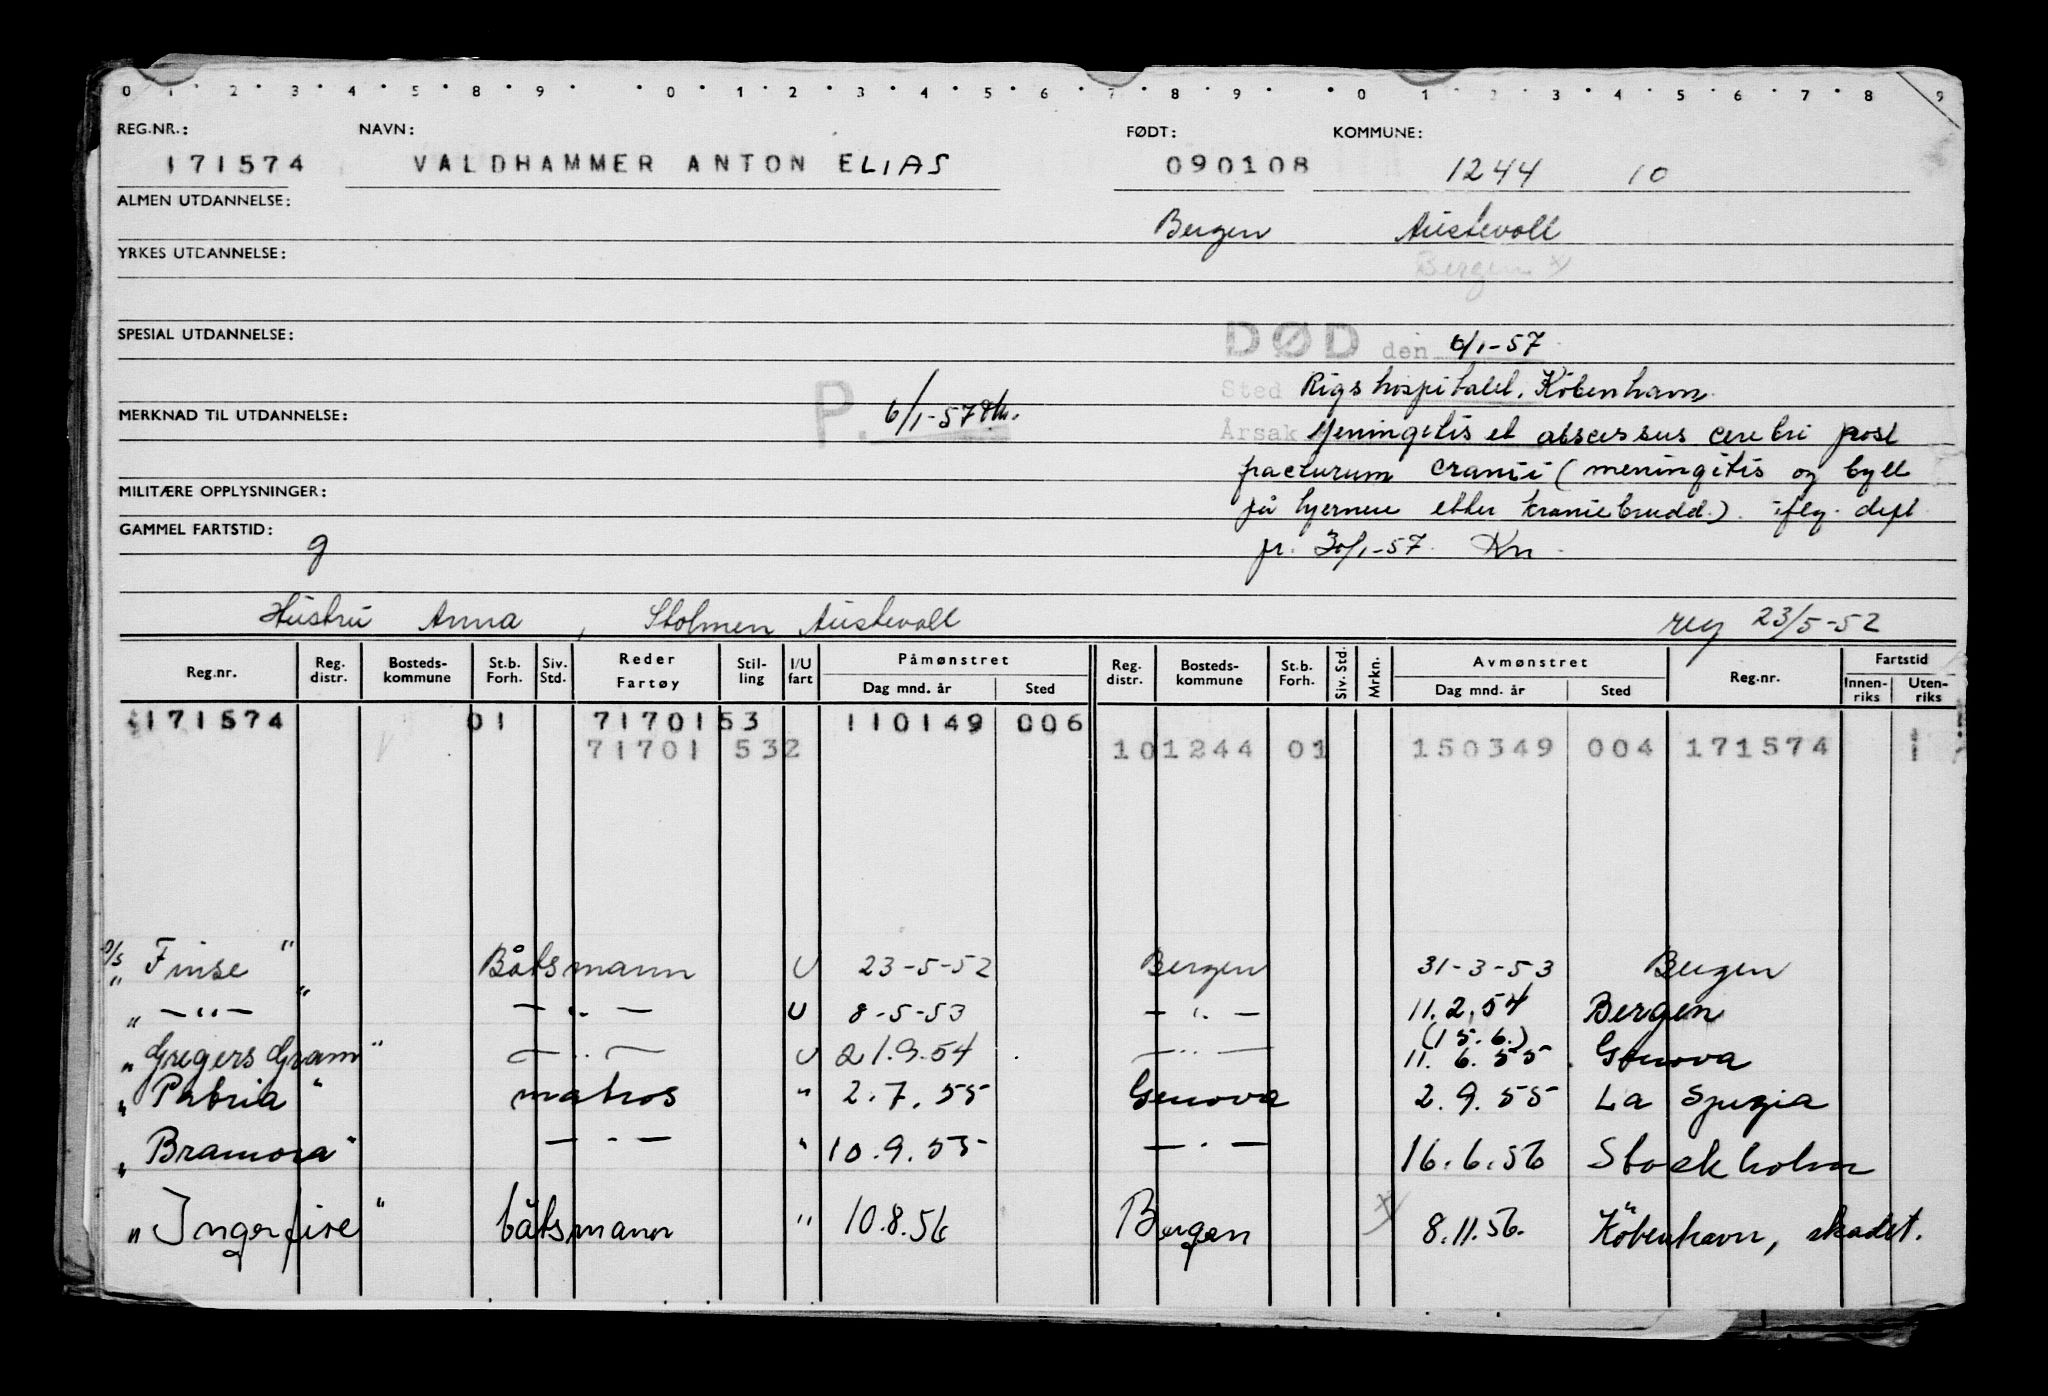 0 1 2 3 4 5 8 9 0 1 2 3 4 5 6 7 8 9 0 1 2 3 4 5 6 7 8 9
REG.NR.: NAVN: FØDT: KOMMUNE:
171574 VALDHAMMER ANTON ELIAS 090108 1244 10
ALMEN UTDANNELSE:
Bergen Austevoll
YRKES UTDANNELSE:
Bergen x)
SPESIAL UTDANNELSE:
DØD den 6/1-57
Sted Rigshospitalet, København
P. 6/1-57
MERKNAD TIL UTDANNELSE:
Årsak Meningitis et abscessus cerebri post
facturum cranii (meningitis og byll
MILITÆRE OPPLYSNINGER:
på hjernen etter kraniebrudd.) iflg. dept
GAMMEL FARTSTID:
9
pr. 30/1-57. Kn.
Hustru Anna, Stolmen Austevoll reg 23/5-52
Reg.nr. Reg. distr. Bosteds-kommune St.b. Forh. Siv. Std. Reder Fartøy Stil-ling I/U fart Påmønstret Dag mnd. år Sted Reg. distr. Bosteds-kommune St.b. Forh. Siv. Std. Mrkn. Avmønstret Dag mnd. år Sted Reg.nr. Fartstid Innen-riks Uten-riks
171574 01 7170153 110149 006
71701 532 101244 01 150349 004 171574 1
D/S " Finse " Båtsmann U 23-5-52 Bergen 31-3-53 Bergen
" — " — " — " — U 8-5-53 — " — 11.2.54 Bergen
(15.6.)
" Gregers Gram " — " — U 21.9.54 — " — 11.6.55 Genova
" Patria " matros " 2.7.55 Genova 2.9.55 La Spezia
" Bramora " — " — " 10.9.55 — " — 16.6.56 Stockholm
" Ingerfire " båtsmann " 10.8.56 Bergen x) 8.11.56. København, skadet.